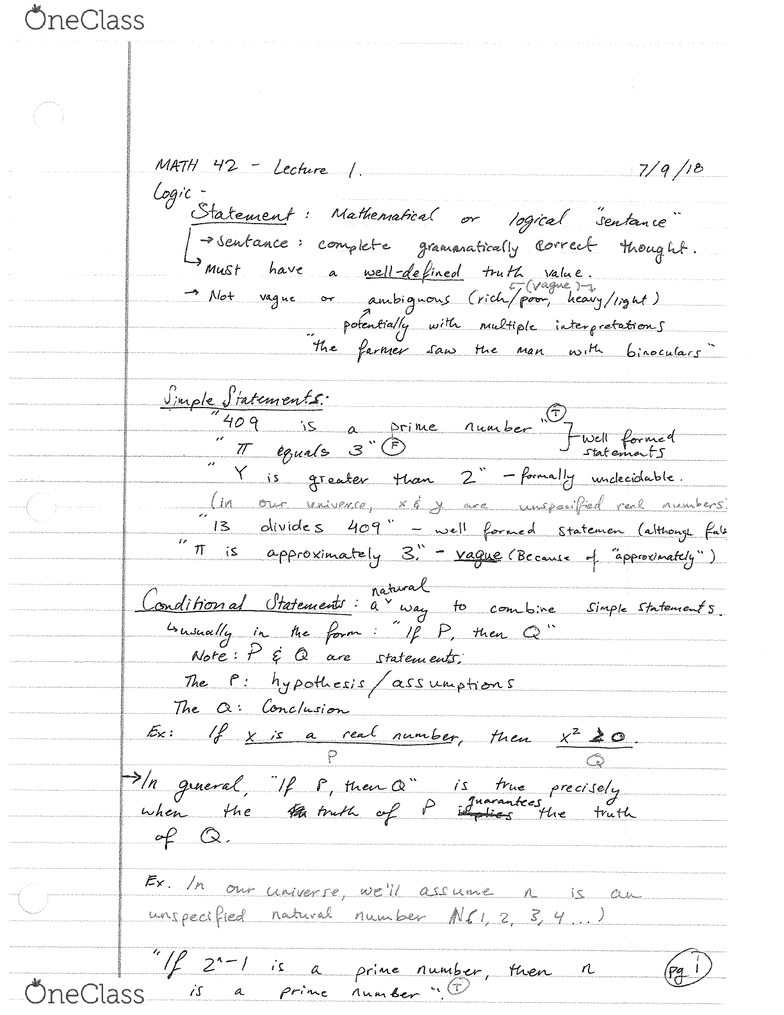 OneClass
MATH 42 - Lecture 1. 7/9/18
Logic -
Statement : Mathematical or logical "sentance"
→ sentance : complete grammatically correct thought.
→ Must have a well-defined truth value.
(vague)
→ Not vague or ambiguous (rich/poor, heavy/light)
potentially with multiple interpretations
"the farmer saw the man with binoculars"
Simple Statements:
"409 is a prime number" T
"π equals 3" F
well formed
statements
"Y is greater than 2" - formally undecidable.
(in our universe, x & y are unspecified real numbers
"13 divides 409" - well formed statemen (although fals
"π is approximately 3." - vague (Because of "approximately")
natural
Conditional Statements : a way to combine simple statements.
↳ usually in the form : "If P, then Q"
Note : P & Q are statements.
The P : hypothesis / assumptions
The Q : Conclusion
Ex: If x is a real number, then x² ≥ 0.
P Q
→ In general, "If P, then Q" is true precisely
guarantees
when the truth of P implies the truth
of Q.
Ex. In our universe, we'll assume n is an
unspecified natural number N(1, 2, 3, 4 ...)
"If 2ⁿ-1 is a prime number, then n
is a prime number". T
pg 1
OneClass